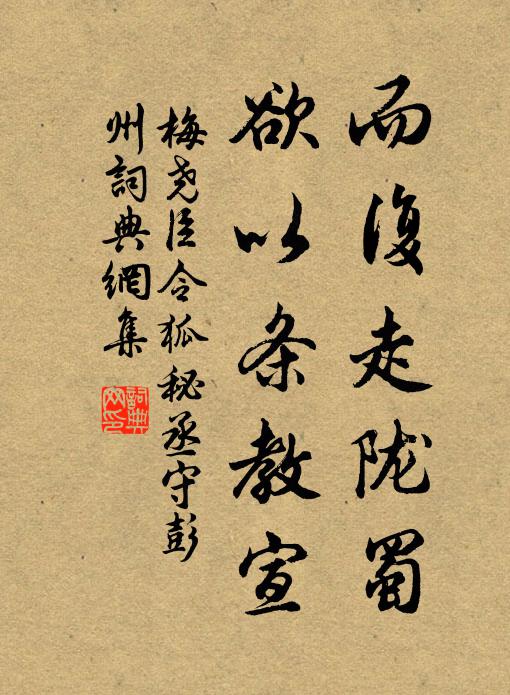 而復走陇蜀
欲以条教宣
梅尧臣令狐秘丞守彭
州詞典網集
詞典网印